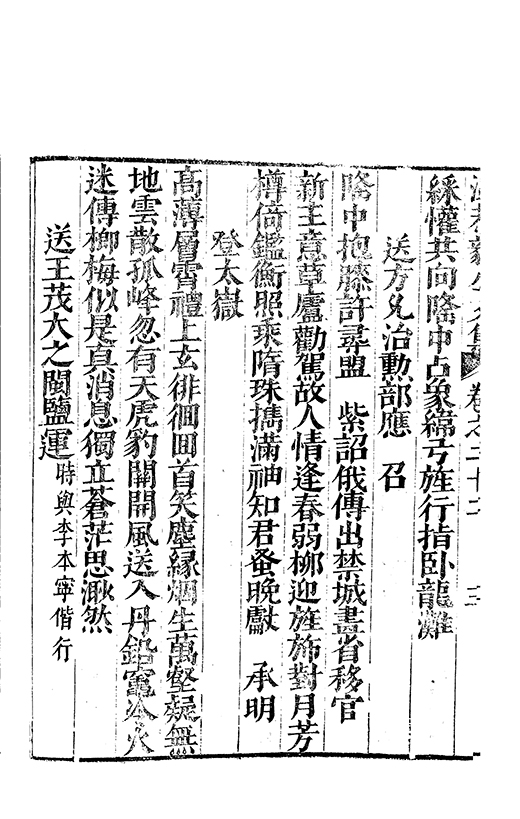 卷之三十二
綵懽共向隆中占象緯弓旌行指卧龍灘
送方兌治勲部應　召
隆中抱膝許尋盟　紫詔俄傳出禁城畫省移官
新主意草廬勸駕故人情逢春弱柳迎旌斾對月芳
樽倚鑑衡照乘隋珠擕滿袖知君蚤晚獻　承明
登太嶽
高薄層霄禮上玄徘徊回首笑塵緣烟生萬壑疑無
地雲散孤峰忽有天虎豹關開風送入丹鉛竈冷火
迷傳榔梅似是真消息獨立蒼茫思渺然
送王茂大之閩鹽運時與李本寧偕行